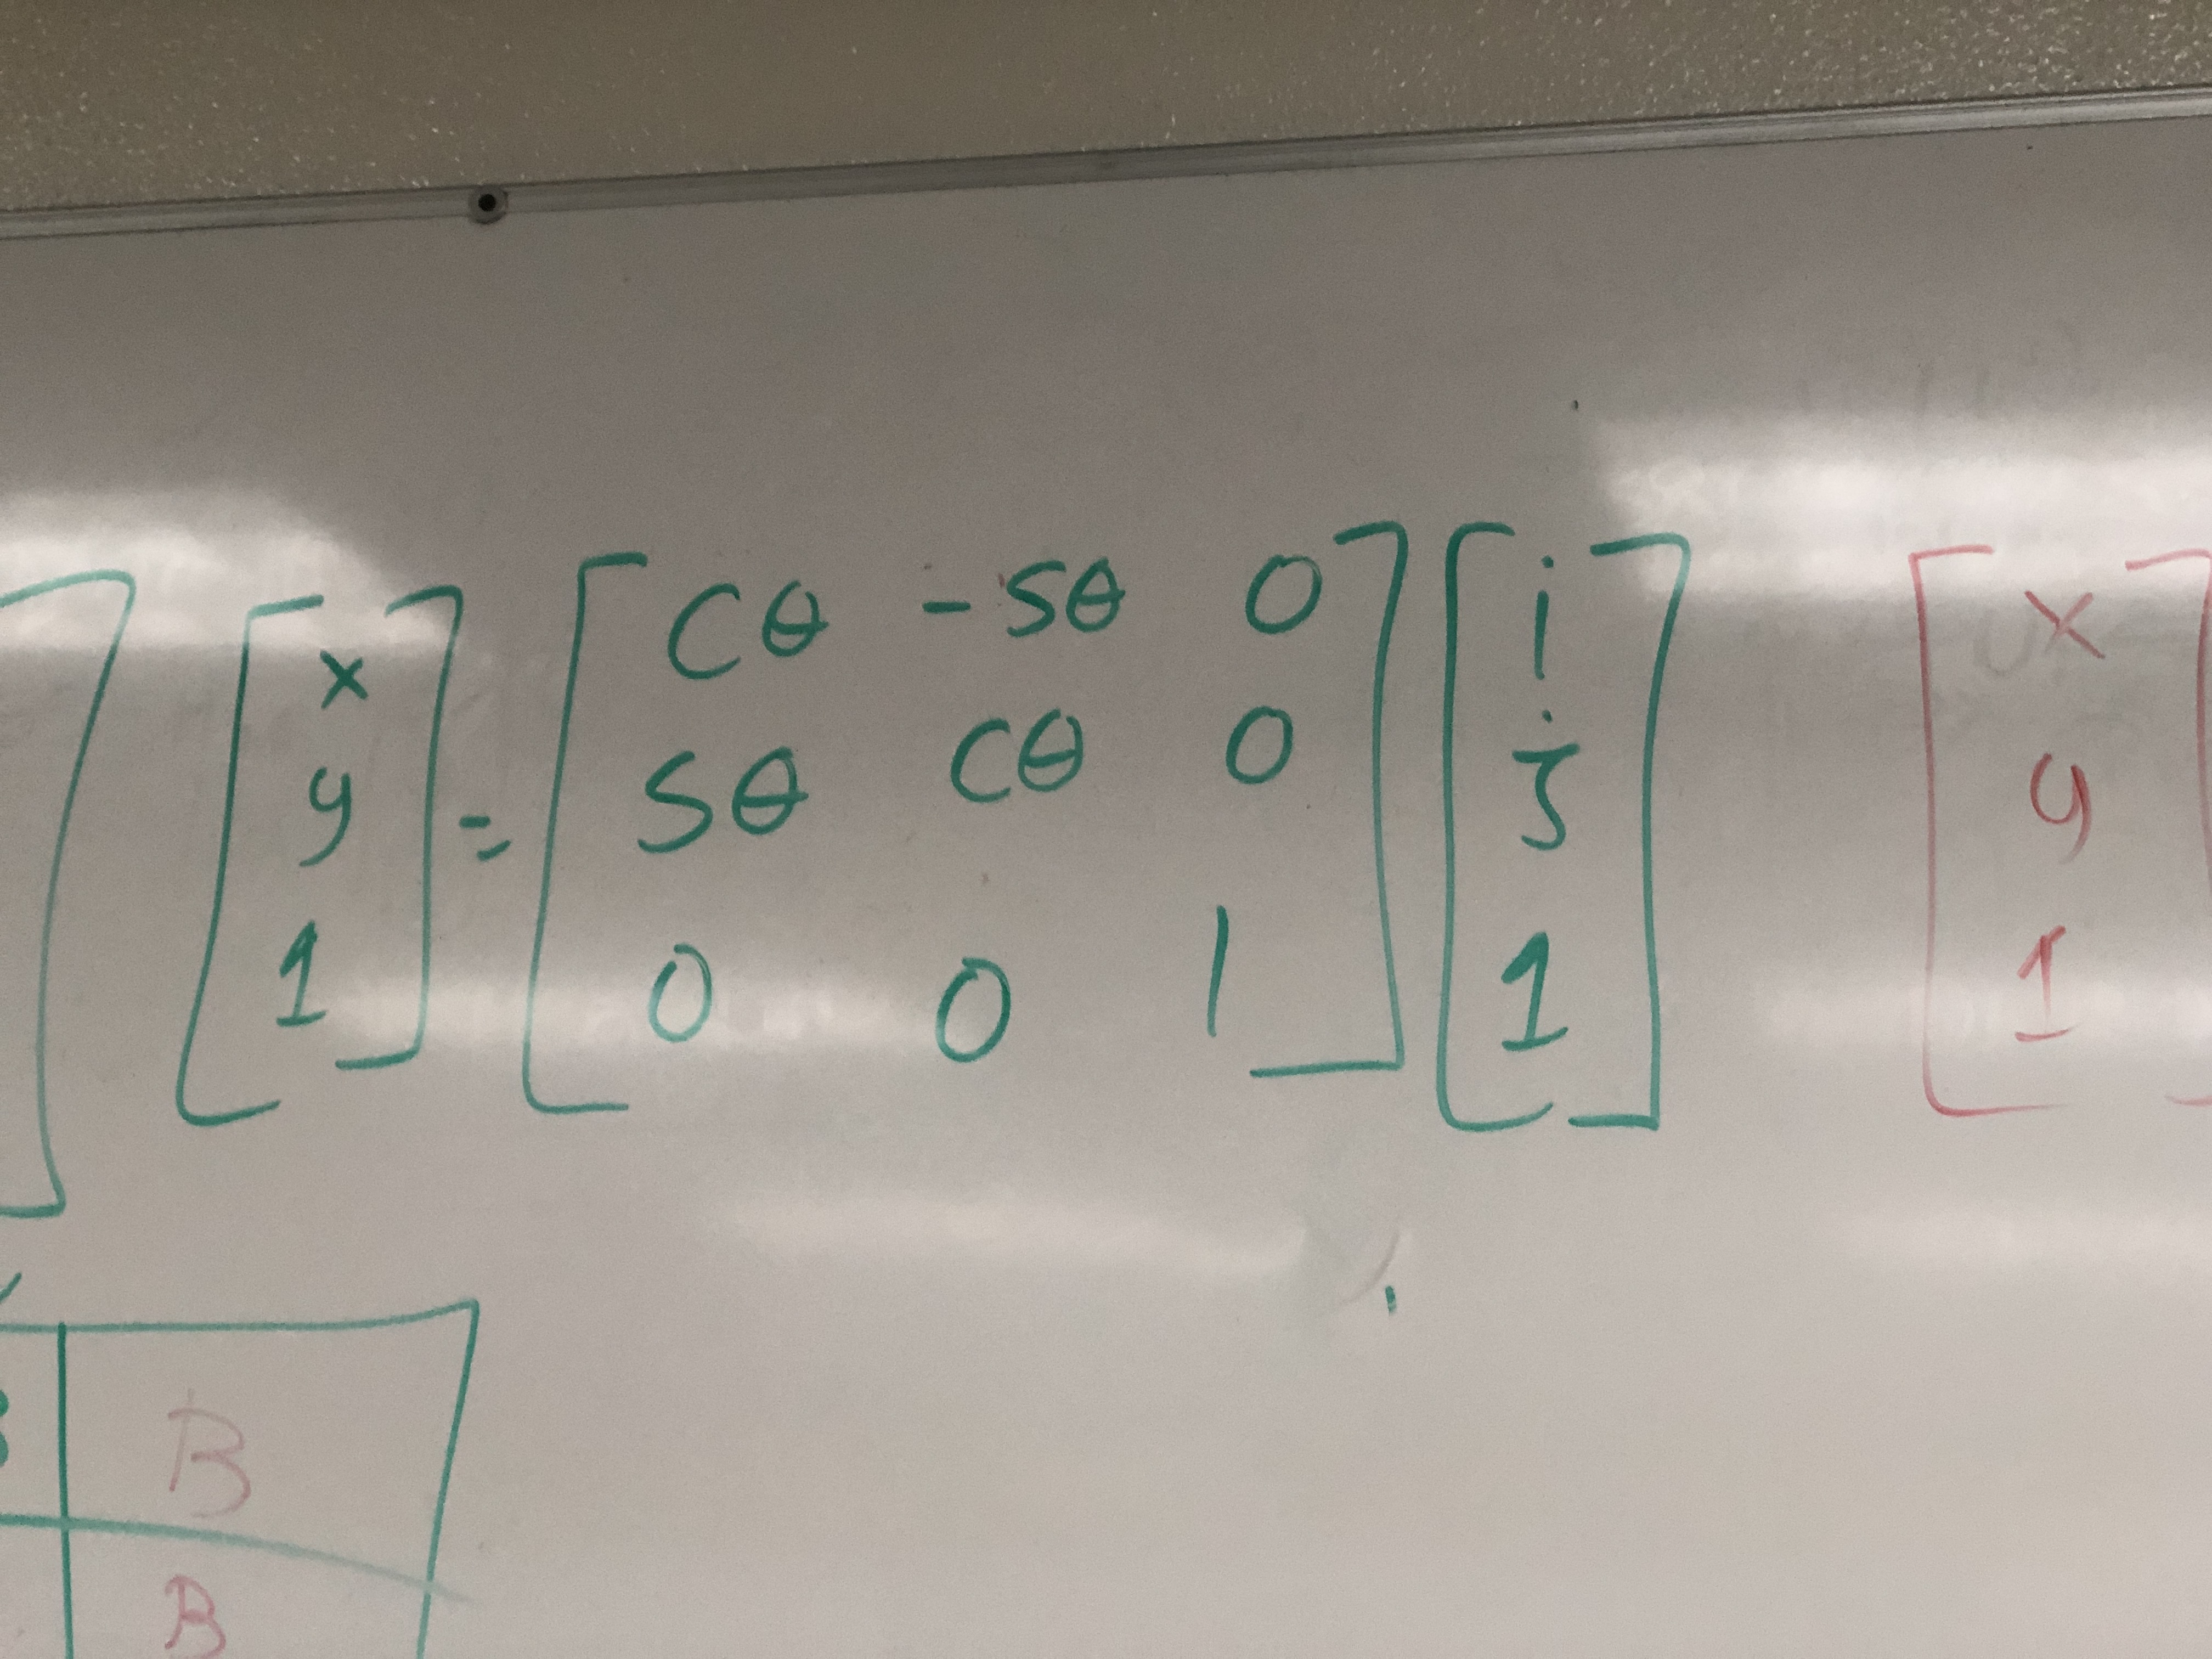 [x y 1] = [Cθ -Sθ 0
Sθ Cθ 0
0 0 1] [i j 1]
[x y 1]
B
B